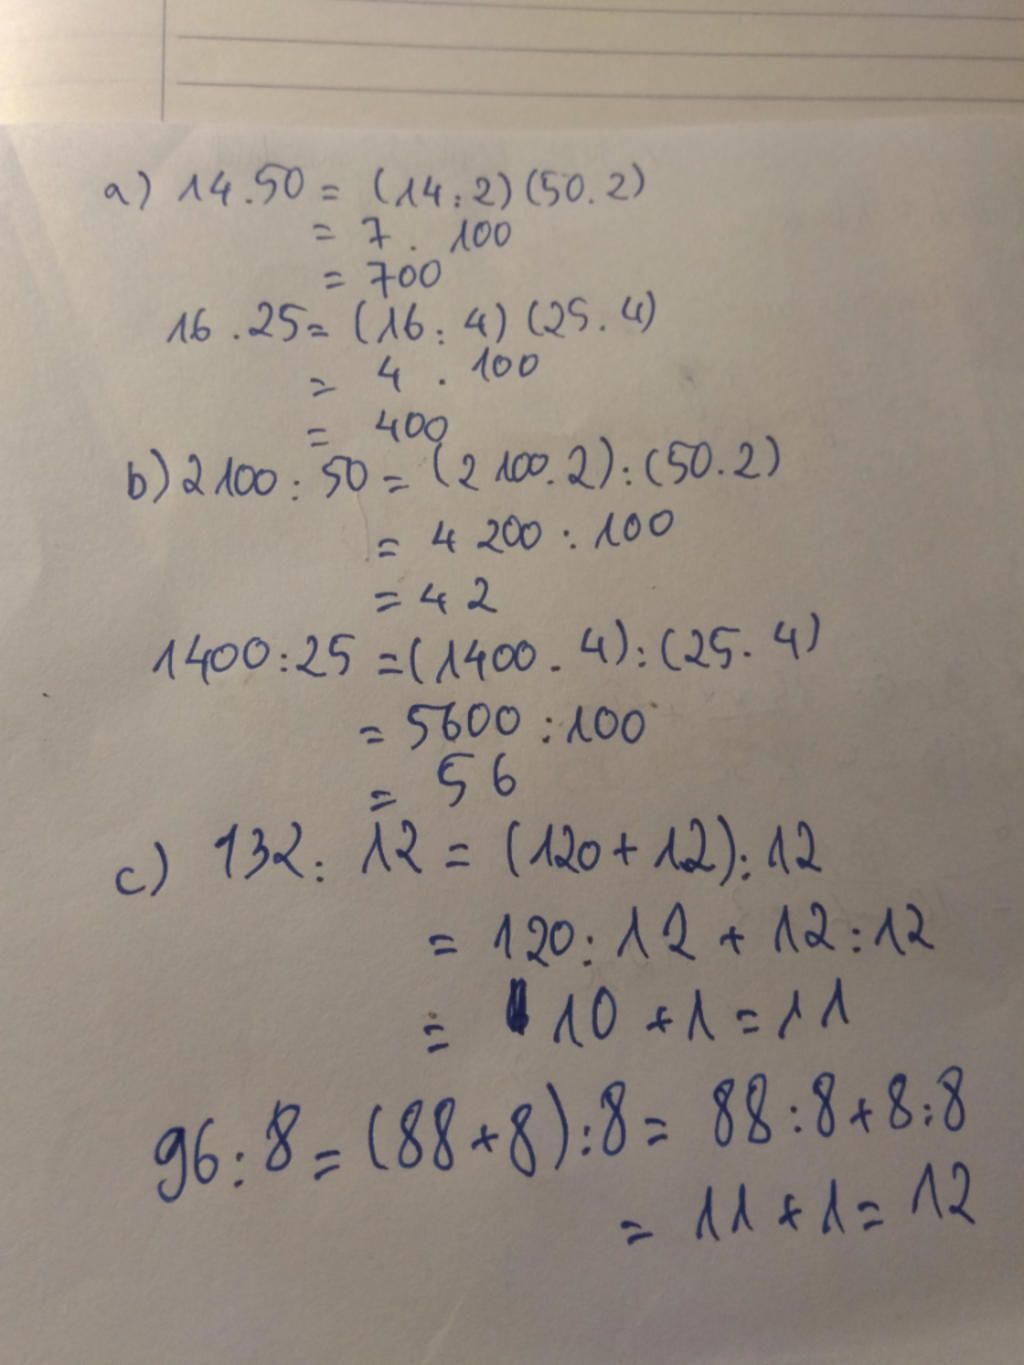 a) 14.50 = (14:2)(50.2)
= 7 . 100
= 700
16 .25= (16: 4) (25.4)
= 4 . 100
= 400
b) 2100: 50 = (2 100.2):(50.2)
= 4 200 : 100
= 42
1400:25 =(1400.4):(25.4)
= 5600 :100
= 56
c) 132: 12 = (120+12):12
= 120: 12 + 12:12
= 10 +1 =11
96:8=(88+8):8= 88:8+8:8
= 11+1= 12